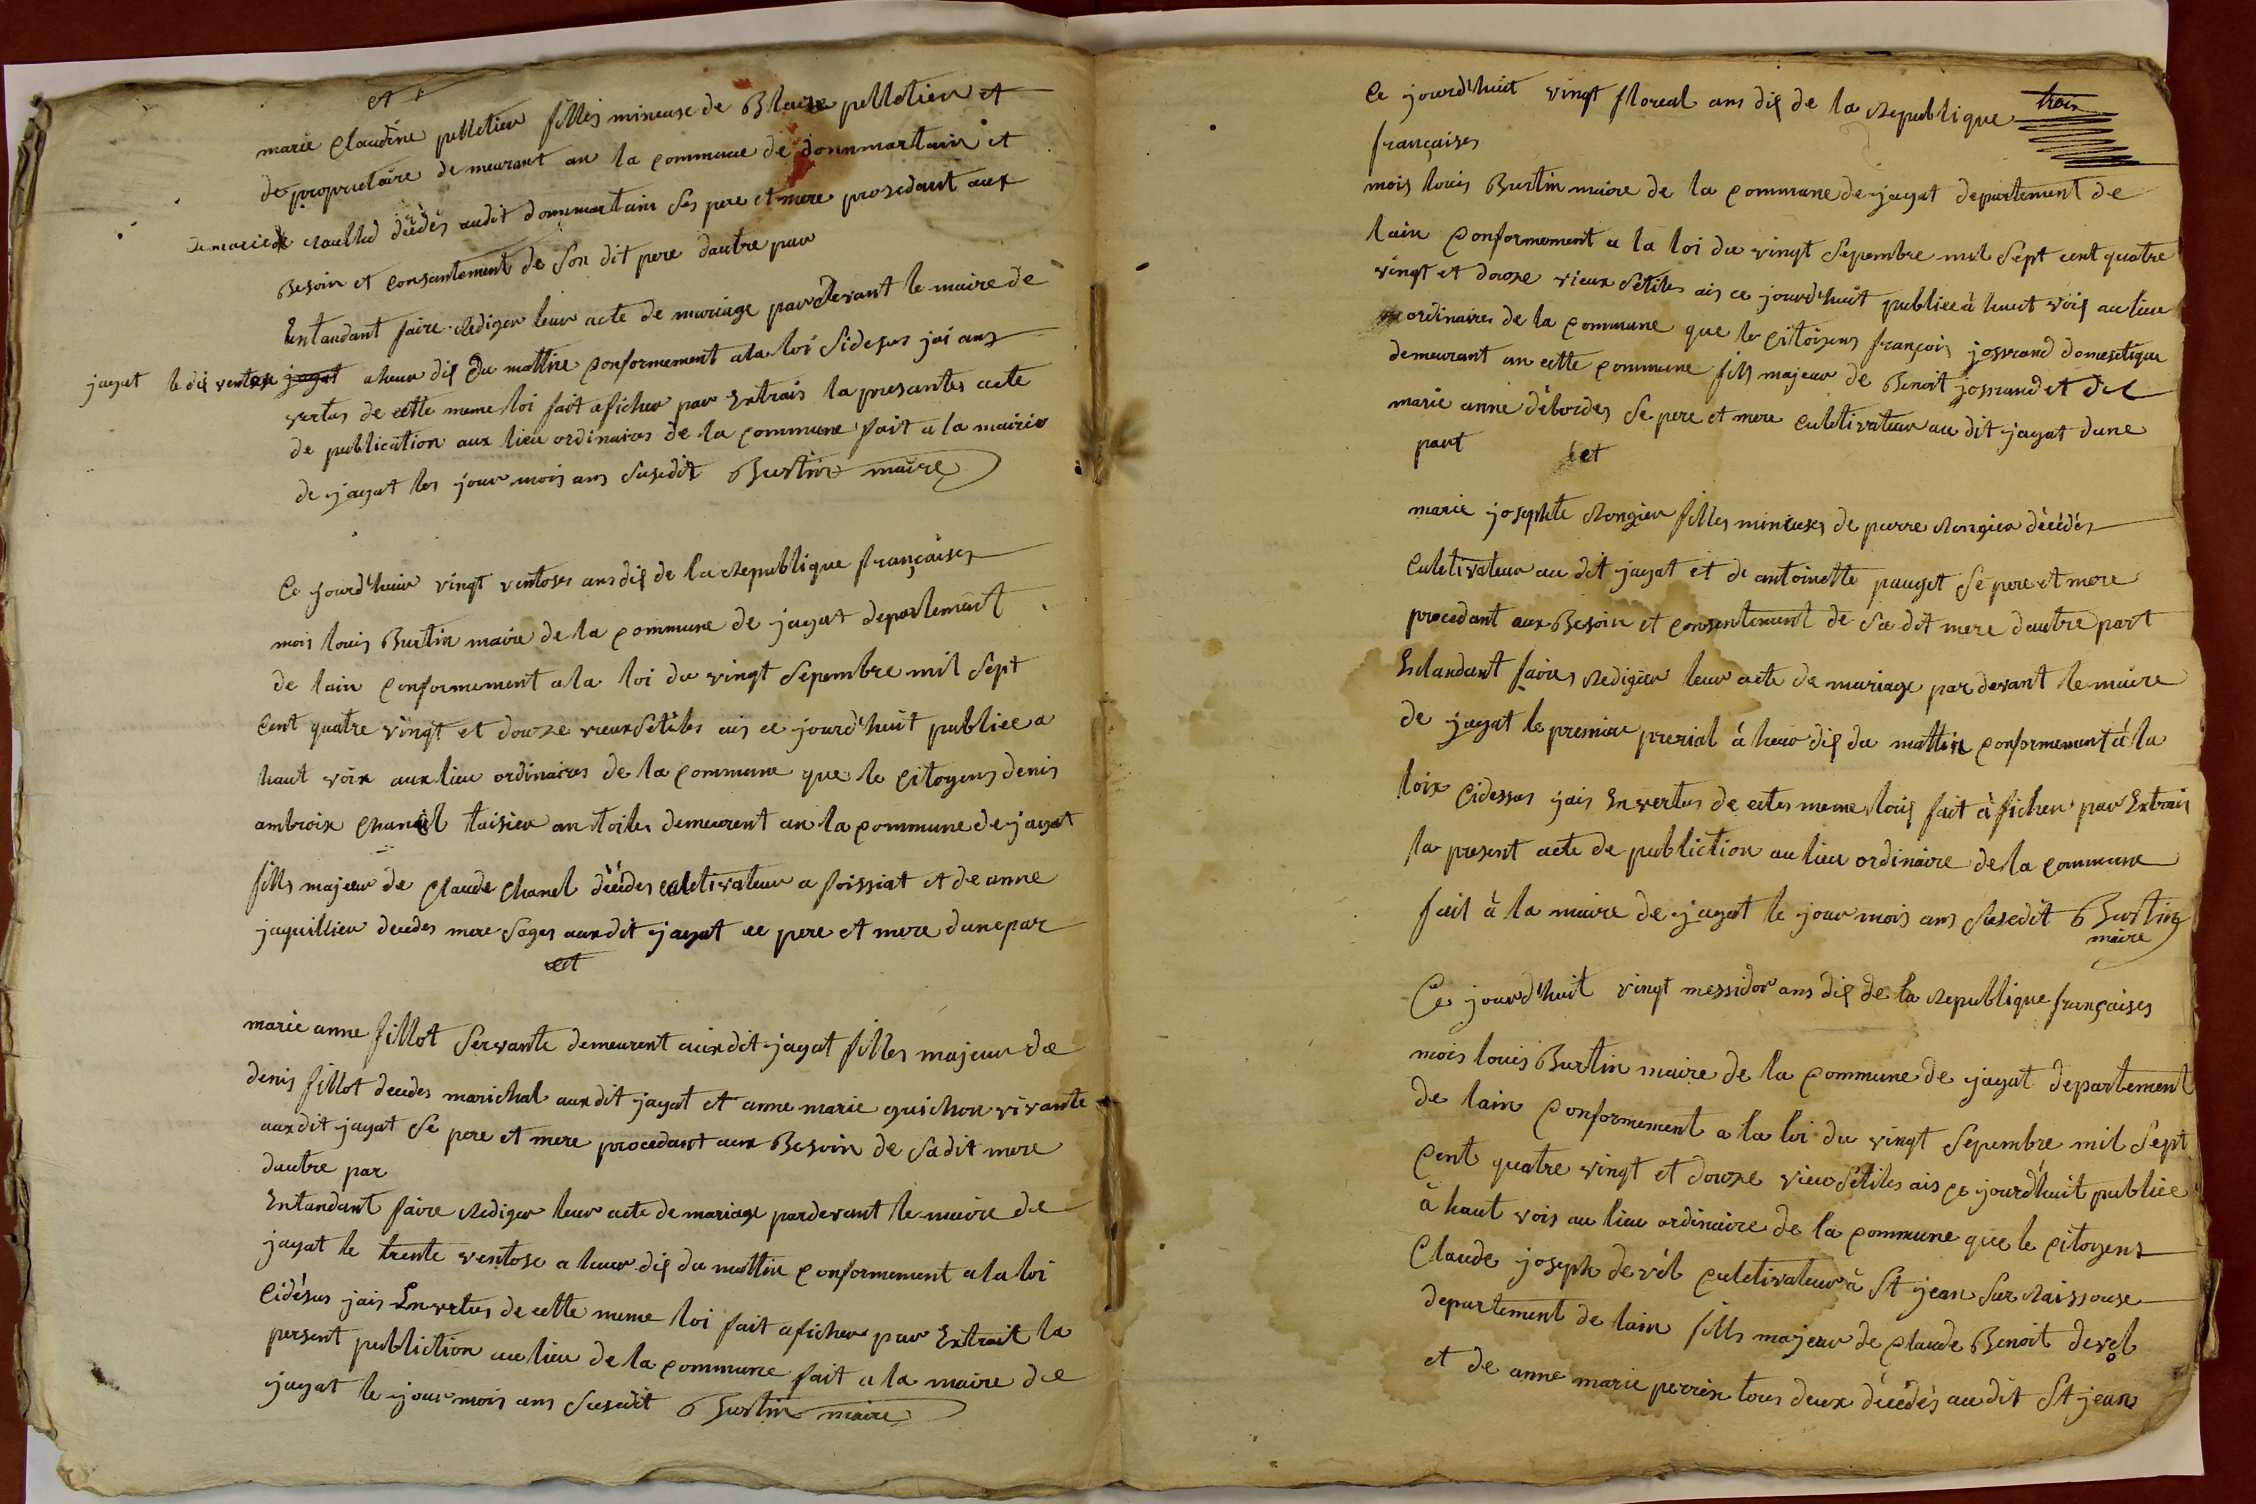 et
marie Claudine pelletier filles mineuse de Blaise pelletier et
de proprietaire demeurant an la commune de donnmartain et
de marie raullud décédés audit dommartain ses pere et mere prosedant aux
Besoin et consantement de son dit pere dautre par
Entandant faire Rediger leur acte de mariage pardevant le maire de
jayat le dix ventose jayat a heur dix du mattine conformement a la loi sidesus jai ans
vertus de cette meme loi fait aficher par Extrais la presantes acte
de publication aux lieu ordinaires de la commune fait a la mairie
de jayat les jour mois ans susedit Burtin maire
Ce jourd'huir vingt ventoses ans dix de la Republique françaises
mois louis Burtin maire de la commune de jayat departement
de lain conformement a la loi du vingt sepembre mil sept
cent quatre vingt et douze vieux stiles ais ce jourd'huit publiee a
haut voix aux lieu ordinaires de la commune que le citoyens denis
ambroix Chanel taisier an toiles demeurent an la commune de jayat
fills majeur de Claude Chanel décédes culetivateur a foissiat et de anne
jaquillier decedes mere sages auxdit jayat ce pere et mere dune par
et
marie anne fillot servante demeurent auxdit jayat filles majeur de
denis fillot decedes marichal auxdit jayat et anne marie guichon vivante
auxdit jayat sé pere et mere procedant aux Besoin de sadit mere
dautre par
Entandant faire Rediger leur acte de mariage pardevant le maire de
jayat le trente ventose a heur dix du mattin conformement a la loi
cidésus jais Envertus de cette meme loi fait aficher par Extrait la
persent publiction au lieu de la commune fait a la maire de
jayat le jour mois ans susedit Burtin maire
Ce jourd'huit vingt floreal ans dix de la Republique trois
françaises
mois louis Burtin maire de la commune de jayat departement de
lain conformement a la loi du vingt sepembre mil sept cent quatre
vingt et douze vieux sétiles ais ce jourd'huit publiee à haut voix au lieu
ordinaires de la commune que le citoizens françois josserand domesetique
demeurant an cette commune fills majeur de Benoit josserand et de
marie anne débordes se pere et mere culetivateur au dit jayat dune
part et
marie josephte Rongier filles mineuses de pierre Rongier décédés
culetivateur au dit jayat et de antoinette pauget se pere et mere
procedant aux Besoin et consentement de sa dit mere dautre part
Entandant faires Rediger leur acte de mariage par devant le maire
de jayat le premier prerial à heur dix du mattin conformement à la
loix cidessus jais Envertus de cetes meme loix fait àficher par Extrais
la present acte de publiction au lieu ordinaire de la commune
fait à la maire de jayat le jour mois ans susedit Burtin
maire
Ce jourd'huit vingt messidor ans dix de la Republique françaises
mois louis Burtin maire de la commune de jayat departement
de lain conformement a la loi du vingt sepembre mil sept
cent quatre vingt et douze vieux sétiles ais ce jourd'huit publiee
à haut vois au lieu ordinaire de la commune que le citoyens
Claude joseph devél culetivateur à St jean sur Raissouse
departement de lain fills majeur de Claude Benoit devel
et de anne marie perrin tous deux décédés au dit St jean